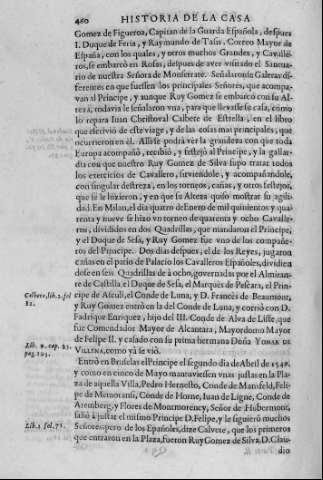 460 HISTORIA DE LA CASA
Gomez de Figueroa, Capitan de la Guarda Española, despues
I. Duque de Feria, y Raymundo de Tasis, Correo Mayor de
España, con los quales, y otros muchos Grandes, y Cavalleros,
se embarcò en Rosas, despues de aver visitado el Santuario
de nuestra Señora de Monserrate. Señalaronse Galeras diferentes
en que fuessen los principales Señores, que acompañavan
al Principe, y aunque Ruy Gomez se embarcò con su Alteza,
todavia le señalaron vna, para que llevasse se casa, como
lo repara Iuan Christoval Calbete de Estrella, en el libro
que escriviò de este viage, y de las cosas mas principales, que
ocurrieron en èl. Alli se podrà ver la grandeza con que toda
Europa acompañò, recibiò, y festejò al Principe, y la gallardia
con que nuestro Ruy Gomez de Silva supo tratar todos
los exercicios de Cavallero, sirviendole, y acompañandole,
con singular destreza, en los torneos, cañas, y otros festejos,
que se le hizieron, y en que su Alteza quiso mostrar su agilidad.
En Milan, el dia quatro de Enero de mil quinientos y quarenta
y nueve se hizo vn torneo de quarenta y ocho Cavalleros,
divididos en dos Quadrillas, que mandaron el Principe,
y el Duque de Sesa, y Ruy Gomez fue vno de los compañeros
del Principe. Dos dias despues, el de los Reyes, jugaron
cañas en el patio de Palacio los Cavalleros Españoles, divididos
en seis Quadrillas de à ocho, governadas por el Almirante
de Castilla, el Duque de Sesa, el Marquès de Pescara, el Principe
de Asculi, el Conde de Luna, y D. Francès de Beaumont,
y Ruy Gomez entrò en la del Conde de Luna, y corriò con D.
Fadrique Enriquez, hijo del III. Conde de Alva de Liste, que
fue Comendador Mayor de Alcantara, Mayordomo Mayor
de Felipe II. y casado con su prima hermana Doña
VILLENA, como yà se viò.
Entrò en Bruselas el Principe el segundo dia de Abril de 1549.
y como en cinco de Mayo mantuviessen vnas justas en la Plaza
de aquella Villa, Pedro Hernesto, Conde de Mansfeld, Felipe
de Memoransi, Conde de Horne, Iuan de Ligne, Conde de
Aremberg, y Flores de Montmorency, Señor de Hubermont,
saliò à justar el mismo Principe D. Felipe, y le siguieron muchos
Señores; pero de los Españoles, dize Calvete, que los primeros
que entraron en la Plaza, fueron Ruy Gomez de Silva, D. Claudio
Calbete, lib. 1. fol.
Lib. 9. cap. 23.
pag. 203.
Lib. 2 fol. 71.